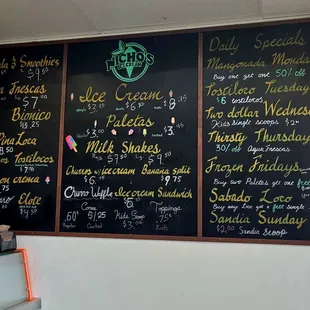 & Smoothies
$9.50
Frescas
$7.00
Bionico
$8.25
Loca
Tostilocos
$7.00
on crema
Elote
$4.50
NICHO'S
Ice Cream
Paletas
$3.00
Milk Shakes
$7.00
$9.00
Churros w/ice cream Banana Split
$9.75
Churro Waffle Ice cream Sandwich
Cone
Kids Scoop
Toppings
60¢
$1.25
$2.00
Daily Specials
Mangonada Monda
Buy one get one 50% off
Tostiloco Tuesday
$6 tostilocos
Two dollar Wednes
Kids single scoops $2.00
Thirsty Thursday
30% off Agua Frescas
Frozen Fridays
Buy two Paletas get one free
Sabado Loco
Buy any Loco get a free single
Sandia Sunday
$2.00 Sandia Scoop